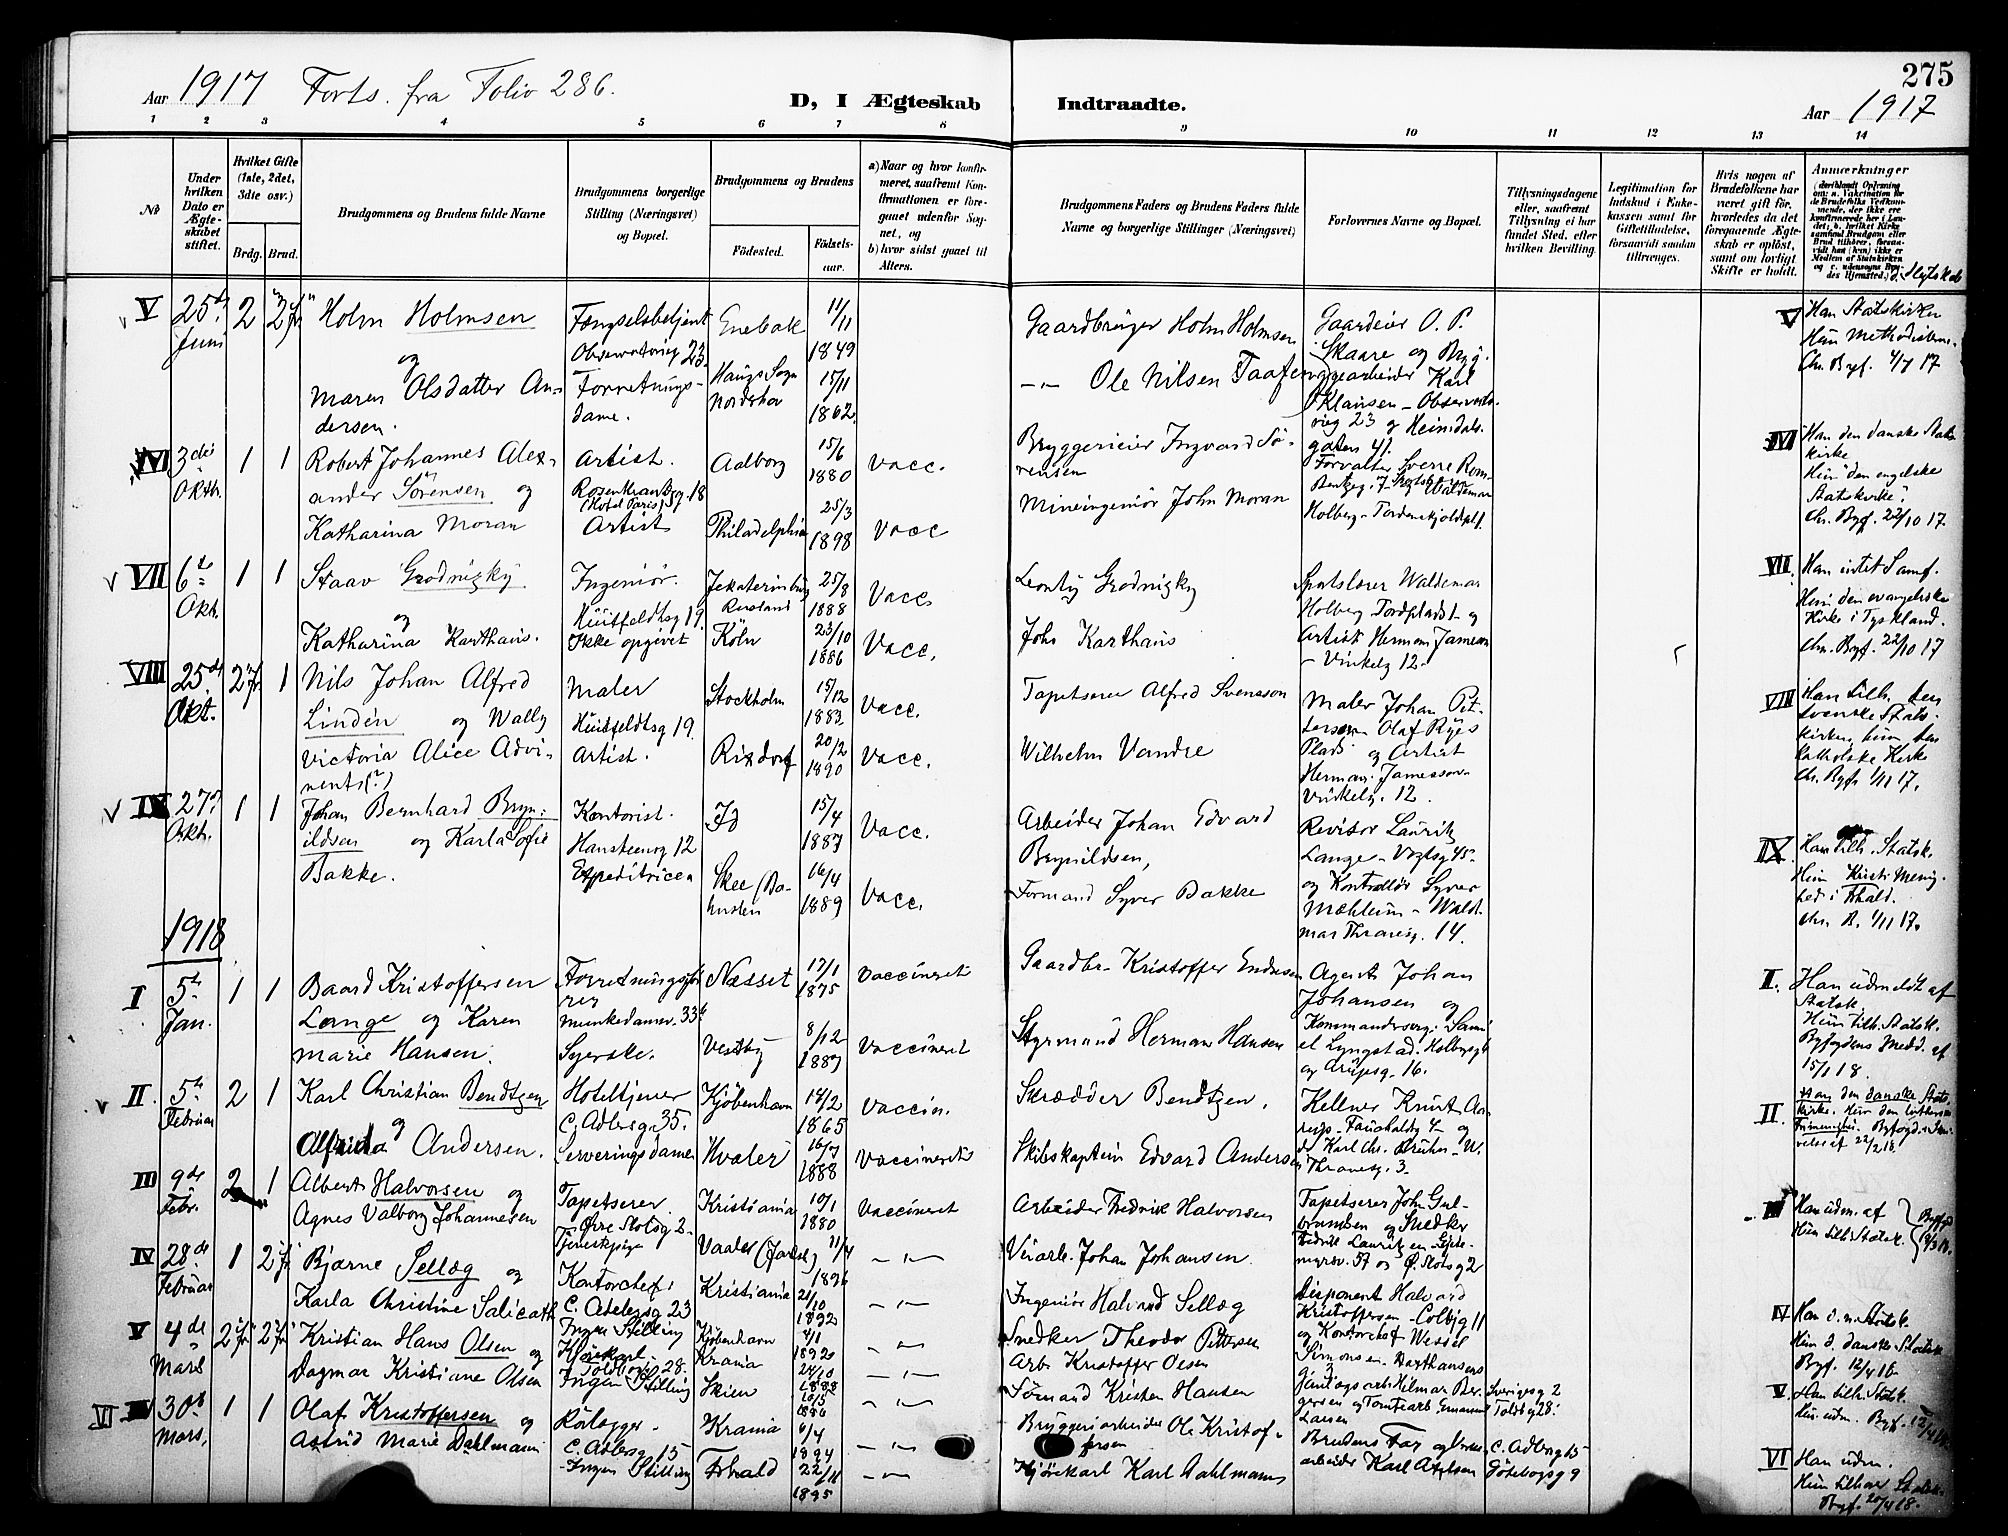 275
Aar 1917 Forts. fra Folio 286.
D, I Ægteskab Indtraadte.
Aar 1917
1 2 3 4 5 6 7 8 9 10 11 12 13 14
No
Under hvilken Dato er Ægteskabet stiftet.
Hvilket Gifte (1ste, 2det, 3die osv.)
Brdg. Brud.
Brudgommens og Brudens fulde Navne
Brudgommens borgerlige Stilling (Næringsvei) og Bopæl.
Brudgommens og Brudens
Fødested. Fødselsaar.
a) Naar og hvor konfirmeret, saafremt Konfirmationen er foregaaet udenfor Sognet, og
b) hvor sidst gaaet til Alters.
Brudgommens Faders og Brudens Faders fulde Navne og borgerlige Stillinger (Næringsvei)
Forlovernes Navne og Bopæl.
Tillysningsdagene eller, saafremt Tillysning ei har fundet Sted, efter hvilken Bevilling.
Legitimation for Indskud i Enkekassen samt for Giftetilladelse, forsaavidt saadan tiltrænges.
Hvis nogen af Brudefolkene har været gift før, hvorledes da det foregaaende Ægteskab er opløst, samt om lovligt Skifte er holdt.
Anmærkninger
V 25de Juni 2 2 fr
Holm Holmsen
og
Maren Olsdatter An-
dersen.
Fængselsbetjent
Observatorieg 23.
Forretnings-
dame.
Enebak
11/11 1849
Haugs Sogn
Nordshov
15/11 1862
Gaardbruger Holm Holmsen
-"- Ole Nilsen
Gaardeier O. P.
Skaare og Bryg-
gearbeider Karl
Klausen - Observato-
rieg 23 og Heimdals-
gaten 41.
V Han Statskirken
Hun Methodistern
Chr. Byf. 4/7 17
VI 3die Oktbr. 1 1
Robert Johannes Alex-
ander Sörensen og
Katharina Moran
Artist.
Rosenkrantzg 18
(Hotel Paris)
Artist
Aalborg
15/6 1880
Philadelphia
25/3 1898
Vacc.
Vacc
Bryggerieier Ingvard Sö-
rensen
Mineingeniør John Moran
Forvalter Sverre Rom-
Waldemar
Holberg - Tordenskjoldspl.
VI Han den danske Stats
kirke
Hun "den engelske
Statskirke".
Chr. Byf. 22/10 17.
VII 6te Okt. 1 1
Staav Grodnizky
og
Katharina Karthaus.
Ingeniør.
Huitfeldtsg 19.
Ikke opgivet
Jekaterinburg
Rusland
25/8 1888
Köln
23/10 1886
Vacc.
Vacc.
Leonty Grodnizky
Joh. Karthaus
Sportslærer Waldemar
Holberg Tordpladst og
Artist Herman Jameson
- Vinkelg 12 -
VII Han intet Samf.
Hun den evangeliske
Kirke i Tyskland.
Chr. Byf. 22/10 17
VIII 25de Okt. 2 fr 1
Nils Johan Alfred
Lindén og Wally
Victoria Alice Advi-
nents(?)
Maler
Huitfeldtsg 19.
Artist.
Stockholm
15/12 1883
Rixdorf
20/2 1890
Vacc.
Vacc.
Tapetserer Alfred Svensson
Wilhelm Vandre
Maler Johan Pet-
tersen Olaf Ryes
Plads og Artist
Herman Jamesson
Vinkelg. 12.
VIII Han tilh. den
svenske Stats-
kirken, hun den
katholske Kirke
Chr. Byf. 1/11 17.
IX 27de Oktbr. 1 1
Johan Bernhard Bryn-
ildsen og Karla Sofie
Bakke.
Kontorist.
Hansteensg 12
Expeditrice
Id
15/4 1887
Skee (Ba-
huslen
16/4 1889
Vacc.
Vacc.
Arbeider Johan Edvard
Brynildsen,
Formand Syver Bakke
Revisor Lauritz
Lange - Vogtsg 45 -
og Kontrollør Syver
Mæhlum - Walde-
mar Thranesg. 14.
IX Han tilh. Statsk.
Hun Kristi Menig-
hed i Fhald.
Chr. B. 1/11 17.
1918
I 5te Jan. 1 1
Baard Kristoffersen
Lange og Karen
Marie Hansen.
Forretningsfø-
rer
Munkedamsv. 33b
Syerske.
Nesset
17/1 1875
Vestby
8/12 1887
vaccineret
vaccineret
Gaardbr. Kristoffer Endresen
Styrmand Herman Hansen
Agent Johan
Johansen og
Lyngstad. Holbergsg
og Arupsg. 16.
I. Han udmeldt af
Statsk.
Hun tilh. Statsk.
Byfogdens Medd. af
15/1 18.
II 5te Februar 2 1
Karl Christian Bendtzen
og
Alfrida Andersen.
Hoteltjener
C. Adlersg. 35.
Serveringsdame
Kjöbenhavn
14/2 1865
Hvaler
16/7 1888
vaccin.
vaccineret
Skrædder Bendtzen.
Skibskaptein Edvard Andersen
Kellner Knut
Thranesg. 3.
II Han den danske Stats
kirke. Hun den luthersk
III 9de Febr. 2 1
Albert Halvorsen og
Agnes Valborg Johannesen
Tapetserer.
Øvre Slotsg 2 -
Tjenestepige
Kristiania
10/1 1880
Vaaler
11/4 1896
vaccineret
-"-
Arbeider Fredrik Halvorsen
Veiarb. Johan Johansen.
Tapetserer John Gul-
brandsen og Snedker
Ø. Slotsg 2
III Han udm. af
Hun tilh. Statsk.
IV 28de Februar 1 2 fr
Bjarne Sellæg og
Karla Christine Salicath
Kontorchef
C. Adelersg 23
Ingen Stilling
Kristiania
21/10 1892
Kjöbenhavn
4/1 1892
-"-
-"-
Ingeniør Halvard Sellæg
Snedker Theodor Pettersen
Disponent Halvard
Kristoffersen - Colbjg 11
og Kontorchef Wessel
Simonsen -
IV Han d. n. Statsk.
Hun d. danske Statsk
Byf. 12/4 18.
V 4de Marts 2 fr 2 fr
Kristian Hans Olsen og
Dagmar Kristiane Olsen
Kjørekarl -
Toldbodg 28.
Ingen Stilling
Krania
24/10 1888
Skien
10/5 1886
-"-
-"-
Arb. Kristoffer Olsen
Sømand Kristen Hansen
Hilmar Ber-
gersen og Tomtearb.
Larsen
Sverigesg 2
Toldbg 28.
V Han tilh. Statsk.
Hun udm. Byf. 12/4 18.
VI 30te Mars. 1 1
Olaf Kristoffersen og
Astrid Marie Dahlmann
Rørlægger.
C. Adlersg 15
- Ingen Stilling
Krania
6/4 1894
Frhald
22/11 1895
-"-
-"-
Bryggeriarbeider Ole Kristof-
fersen
Kjørekarl Karl Dahlmann
Brudens Far og
arbeider Karl Axelsen
C. Adlersg 15
Göteborgsg 9
VI Han udm.
Hun tilhører Statsk.
Byf. 20/4 18.